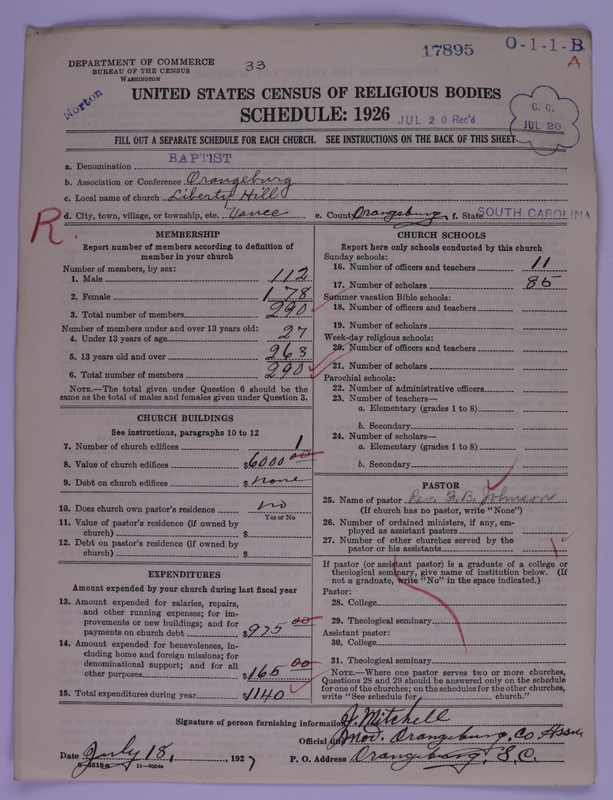 17895 O-1-1-B
A
DEPARTMENT OF COMMERCE
BUREAU OF THE CENSUS
WASHINGTON
33
Norton
UNITED STATES CENSUS OF RELIGIOUS BODIES
SCHEDULE: 1926
JUL 20 Rec'd
C. C.
JUL 20
FILL OUT A SEPARATE SCHEDULE FOR EACH CHURCH. SEE INSTRUCTIONS ON THE BACK OF THIS SHEET
a. Denomination BAPTIST
b. Association or Conference Orangeburg
c. Local name of church Liberty Hill
d. City, town, village, or township, etc. Vance e. County Orangeburg f. State SOUTH CAROLINA
R.
MEMBERSHIP
Report number of members according to definition of
member in your church
Number of members, by sex:
1. Male 112
2. Female 178
3. Total number of members 290
Number of members under and over 13 years old:
4. Under 13 years of age 27
5. 13 years old and over 263
6. Total number of members 290
NOTE.—The total given under Question 6 should be the
same as the total of males and females given under Question 3.
CHURCH BUILDINGS
See instructions, paragraphs 10 to 12
7. Number of church edifices 1
8. Value of church edifices $6000 00
9. Debt on church edifices $ none
10. Does church own pastor's residence? no
Yes or No
11. Value of pastor's residence (if owned by
church) $
12. Debt on pastor's residence (if owned by
church) $
EXPENDITURES
Amount expended by church during last fiscal year
13. Amount expended for salaries, repairs,
and other running expenses; for im-
provements or new buildings; and for
payments on church debt $975 00
14. Amount expended for benevolences, in-
cluding home and foreign missions; for
denominational support; and for all
other purposes $165 00
15. Total expenditures during year $1140
CHURCH SCHOOLS
Report here only schools conducted by this church
Sunday schools:
16. Number of officers and teachers 11
17. Number of scholars 85
Summer vacation Bible schools:
18. Number of officers and teachers
19. Number of scholars
Week-day religious schools:
20. Number of officers and teachers
21. Number of scholars
Parochial schools:
22. Number of administrative officers
23. Number of teachers—
a. Elementary (grades 1 to 8)
b. Secondary
24. Number of scholars—
a. Elementary (grades 1 to 8)
b. Secondary
PASTOR
25. Name of pastor Rev. F. B. Johnson
(If church has no pastor, write "None")
26. Number of ordained ministers, if any, em-
ployed as assistant pastors
27. Number of other churches served by the
pastor or his assistants 1
If pastor (or assistant pastor) is a graduate of a college or
theological seminary, give name of institution below. (If
not a graduate, write "No" in the space indicated.)
Pastor:
28. College
29. Theological seminary
Assistant pastor:
30. College
31. Theological seminary
NOTE.—Where one pastor serves two or more churches,
Questions 28 and 29 should be answered only on the schedule
for one of the churches; on the schedules for the other churches,
write "See schedule for church."
Signature of person furnishing information J. Mitchell
Official title Mod. Orangeburg, Co Assn
Date July 18, 1927 P. O. Address Orangeburg, S.C.